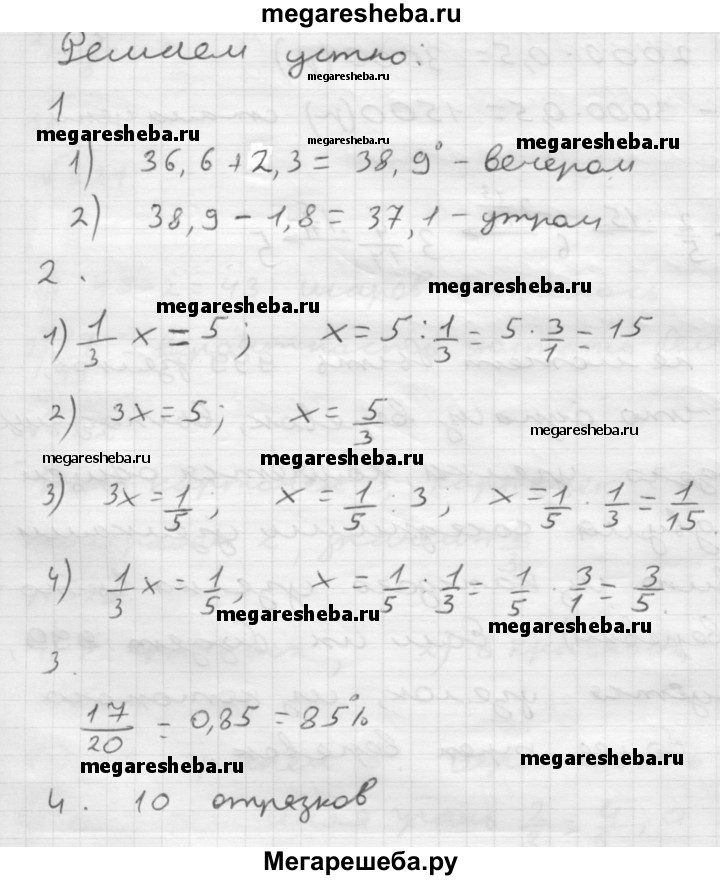 megaresheba.ru
Решаем устно:
megaresheba.ru
1
megaresheba.ru megaresheba.ru megaresheba.ru
1) 36,6 + 2,3 = 38,9° - вечером
2) 38,9 - 1,8 = 37,1 - утром
2.
megaresheba.ru megaresheba.ru
1) 1/3 x = 5; x = 5 : 1/3 = 5 · 3/1 = 15
2) 3x = 5; x = 5/3
megaresheba.ru megaresheba.ru megaresheba.ru
3) 3x = 1/5; x = 1/5 : 3; x = 1/5 · 1/3 = 1/15
4) 1/3 x = 1/5; x = 1/5 : 1/3 = 1/5 · 3/1 = 3/5.
megaresheba.ru megaresheba.ru
3.
17/20 = 0,85 = 85%
megaresheba.ru megaresheba.ru
4. 10 отрезков
Мегарешеба.ру